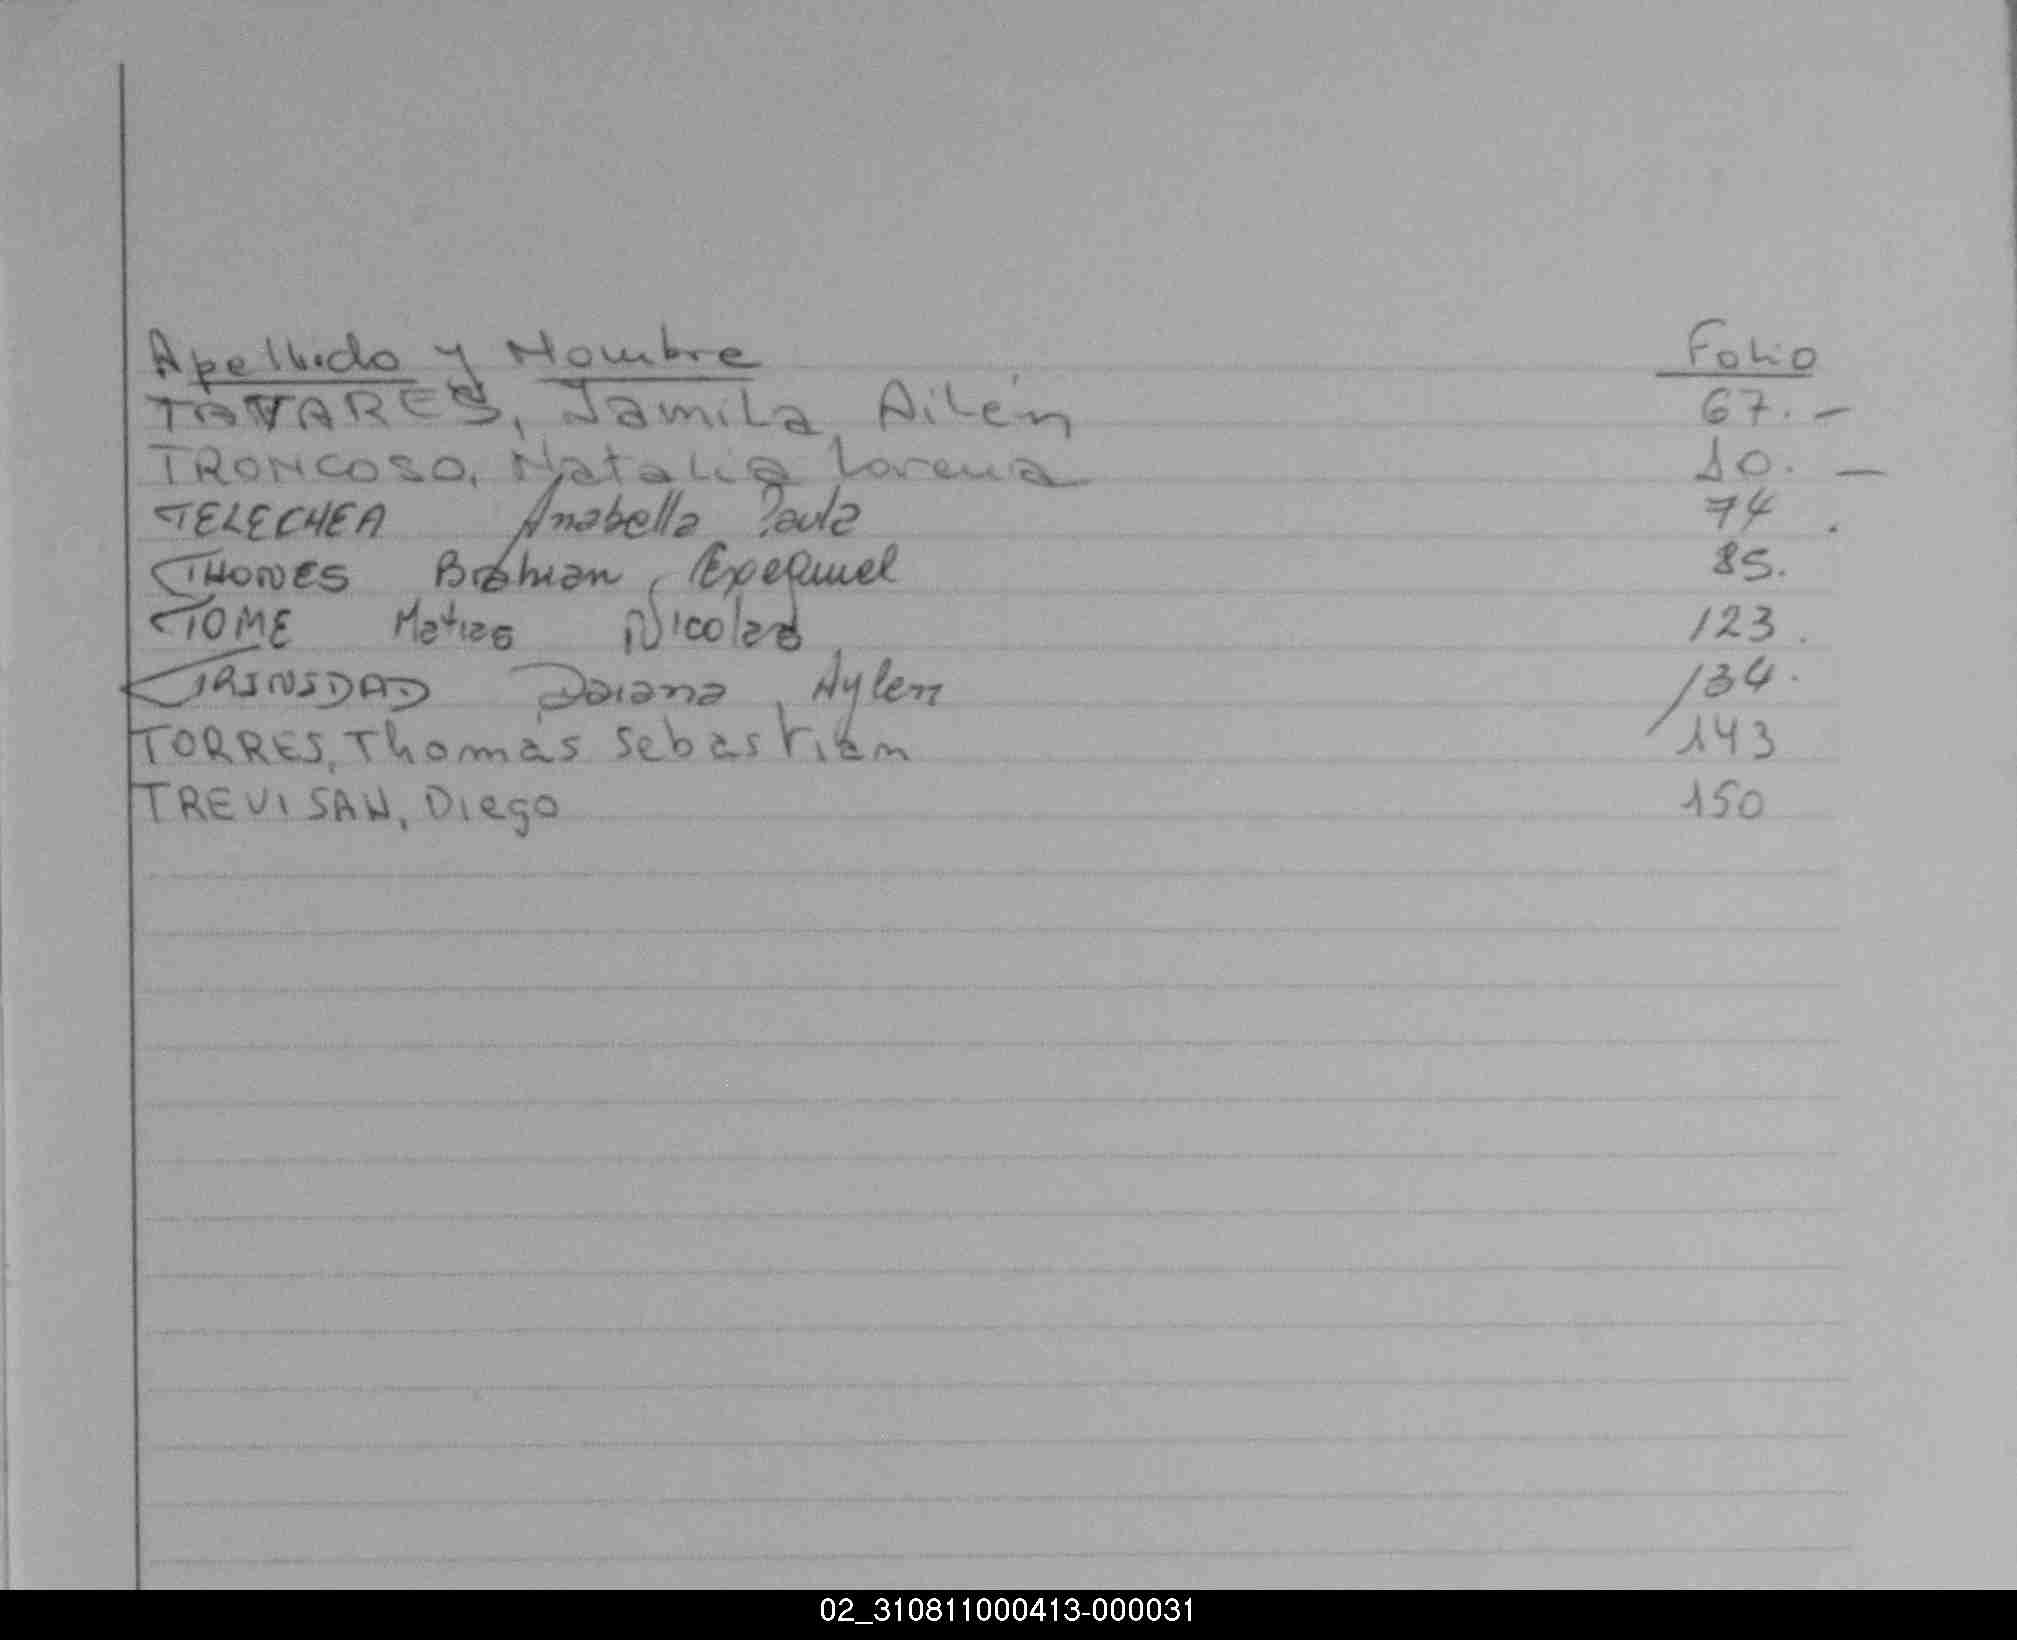 Apellido y Nombre Folio
TAVARES, Jamila Ailén 67. -
TRONCOSO, Natalia Lorena 10. -
TELECHEA Anabella Paula 74.
THONES Brahian Exequiel 85.
TOME Matias Nicolas 123.
TRINIDAD Daiana Aylen 134.
TORRES, Thomas Sebastian 143
TREVISAN, Diego 150
02_310811000413-000031